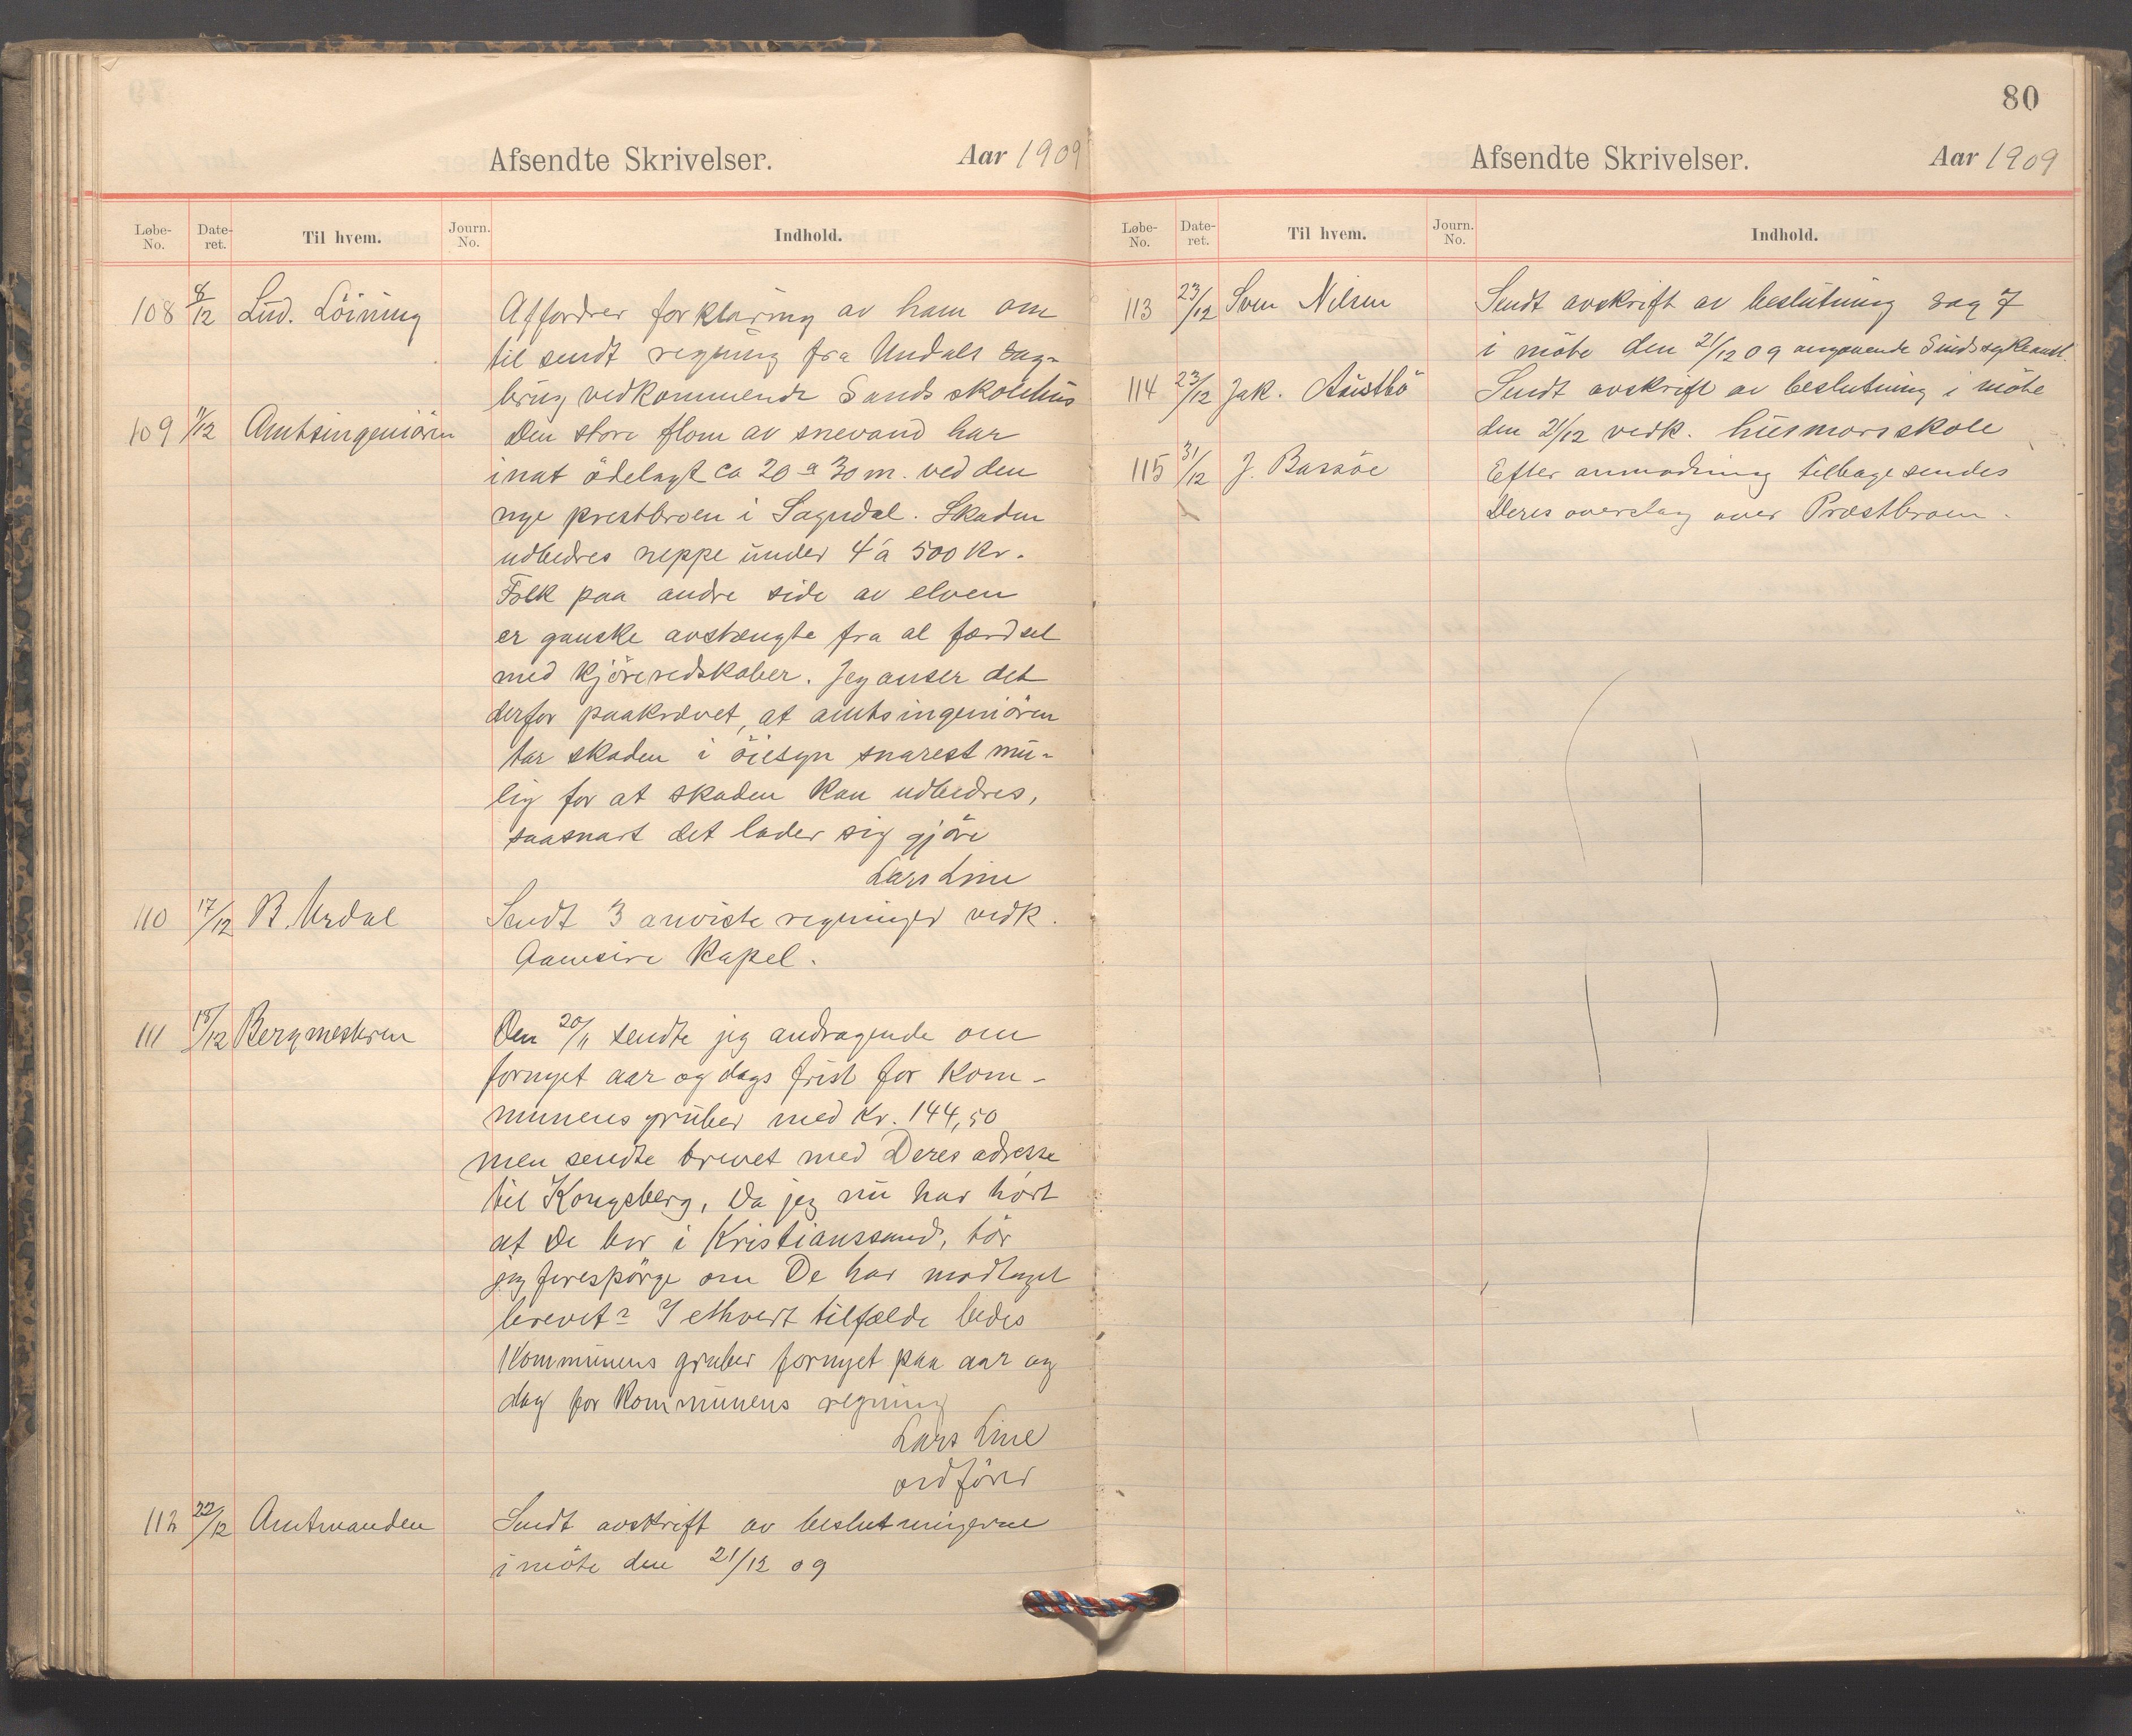 Afsendte Skrivelser. Aar 1909
Løbe-No. Date-ret. Til hvem. Journ. No. Indhold.
108 8/12 Lud. Löining Affordrer forklaring av ham om
til sendt regning fra Undals sag-
brug vedkommende Sands skolehus
109 9/12 Amtsingeniören Den store flom av snevand har
i nat ödelagt ca 20 a 30 m. ved den
nye prestbroen i Sogndal. Skaden
udbedres neppe under 4 a 500 kr.
Folk paa andre side av elven
er ganske avstængte fra al færdsel
med kjöreredskaber. Jeg anser det
derfor paakrævet, at amtsingeniören
tar skaden i öiesyn snarest mu-
lig for at skaden kan udbedres,
saasnart det lader sig gjöre
Lars Line
110 17/12 B. Urdal Sendt 3 anviste regninger vedk.
Aamsire kapel.
111 18/12 Bergmesteren Den 20/11 sendte jeg andragende om
fornyet aar og dags frist for kom-
munens gruber med kr. 144,50
men sendte brevet med Deres adresse
til Kongsberg. Da jeg nu har hört
at De bor i Kristianssand, tör
jeg forespörge om De har modtaget
brevet? I ethvert tilfælde bedes
Kommunens gruber fornyet paa aar og
dag for kommunens regning
Lars Line
ordförer
112 22/12 Amtmanden Sendt avskrift av beslutningerne
i möte den 21/12 09
80
Afsendte Skrivelser. Aar 1909
Løbe-No. Date-ret. Til hvem. Journ. No. Indhold.
113 23/12 Sven Nilsen Sendt avskrift av beslutning sag 7
i möte den 21/12 09 angaaende Sindssykeanst.
114 23/12 Jak. Aüstbö Sendt avskrift av beslutning i möte
den 21/12 vedk. husmorsskole
115 31/12 J. Barsöe Efter anmodning tilbagesendes
Deres overslag over Præstbroen.